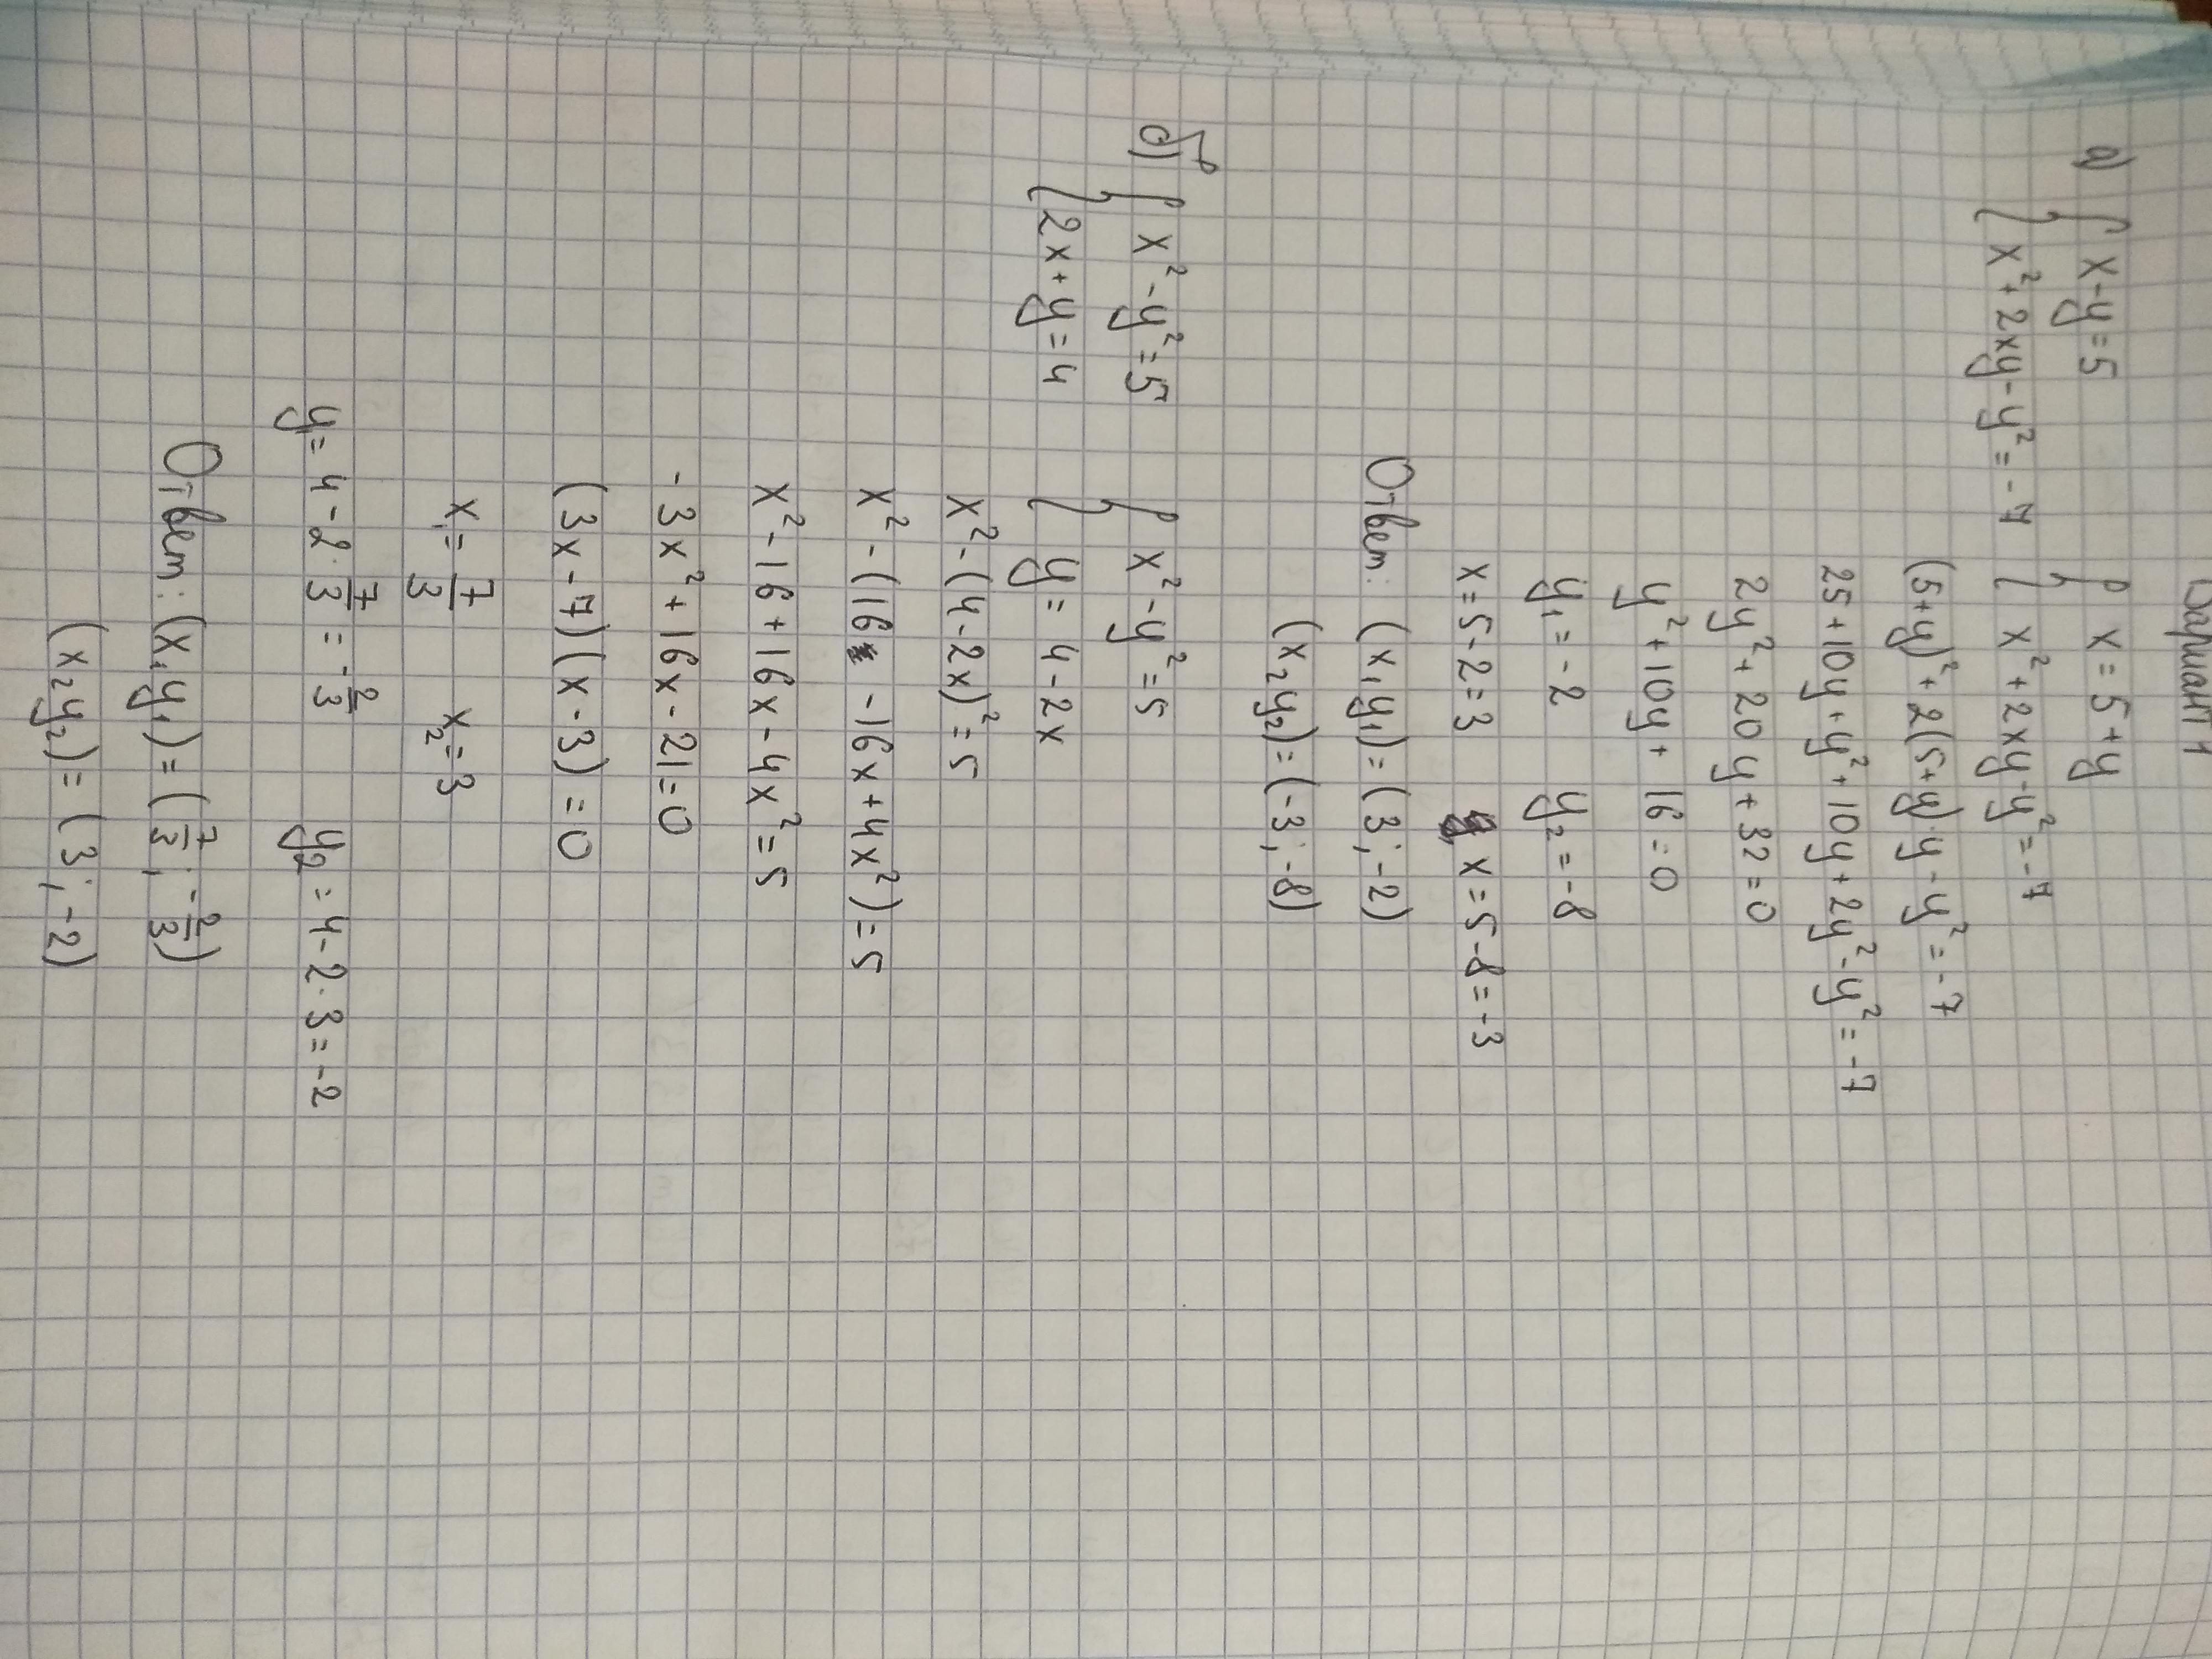 Вариант 1
а) { x-y=5 { x=5+y
{ x²+2xy-y²=-7 { x²+2xy-y²=-7
(5+y)²+2(5+y)·y-y²=-7
25+10y+y²+10y+2y²-y²=-7
2y²+20y+32=0
y²+10y+16=0
y₁=-2 y₂=-8
x=5-2=3 x=5-8=-3
Ответ: (x₁y₁)=(3;-2)
(x₂y₂)=(-3;-8)
б) { x²-y²=5 { x²-y²=5
{ 2x+y=4 { y=4-2x
x²-(4-2x)²=5
x²-(16-16x+4x²)=5
x²-16+16x-4x²=5
-3x²+16x-21=0
(3x-7)(x-3)=0
x₁=7/3 x₂=3
y₁=4-2·7/3=-2/3 y₂=4-2·3=-2
Ответ: (x₁y₁)=(7/3;-2/3)
(x₂y₂)=(3;-2)